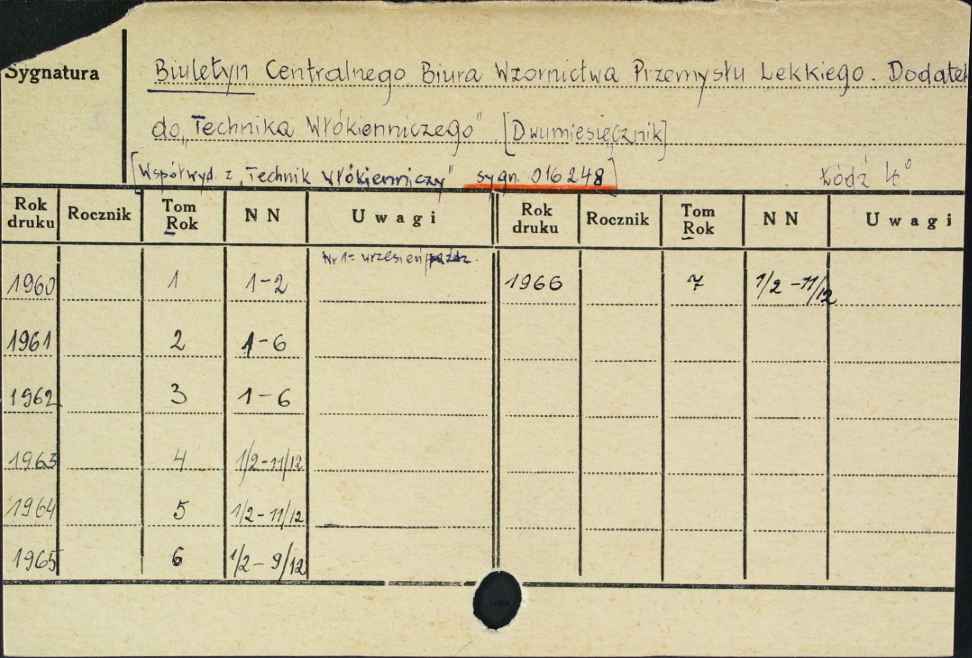 Sygnatura
Biuletyn Centralnego Biura Wzornictwa Przemysłu Lekkiego. Dodatek
do „Technika Włókienniczego". [Dwumiesięcznik]
[Współwyd. z „Technik włókienniczy" sygn. 016248] Łódź 4°
Rok druku Rocznik Tom Rok N N Uwagi Rok druku Rocznik Tom Rok N N Uwagi
Nr 1 = wrzesień/paźdz.
1960 1 1-2 1966 7 1/2-11/12
1961 2 1-6
1962 3 1-6
1963 4 1/2-11/12
1964 5 1/2-11/12
1965 6 1/2-9/12